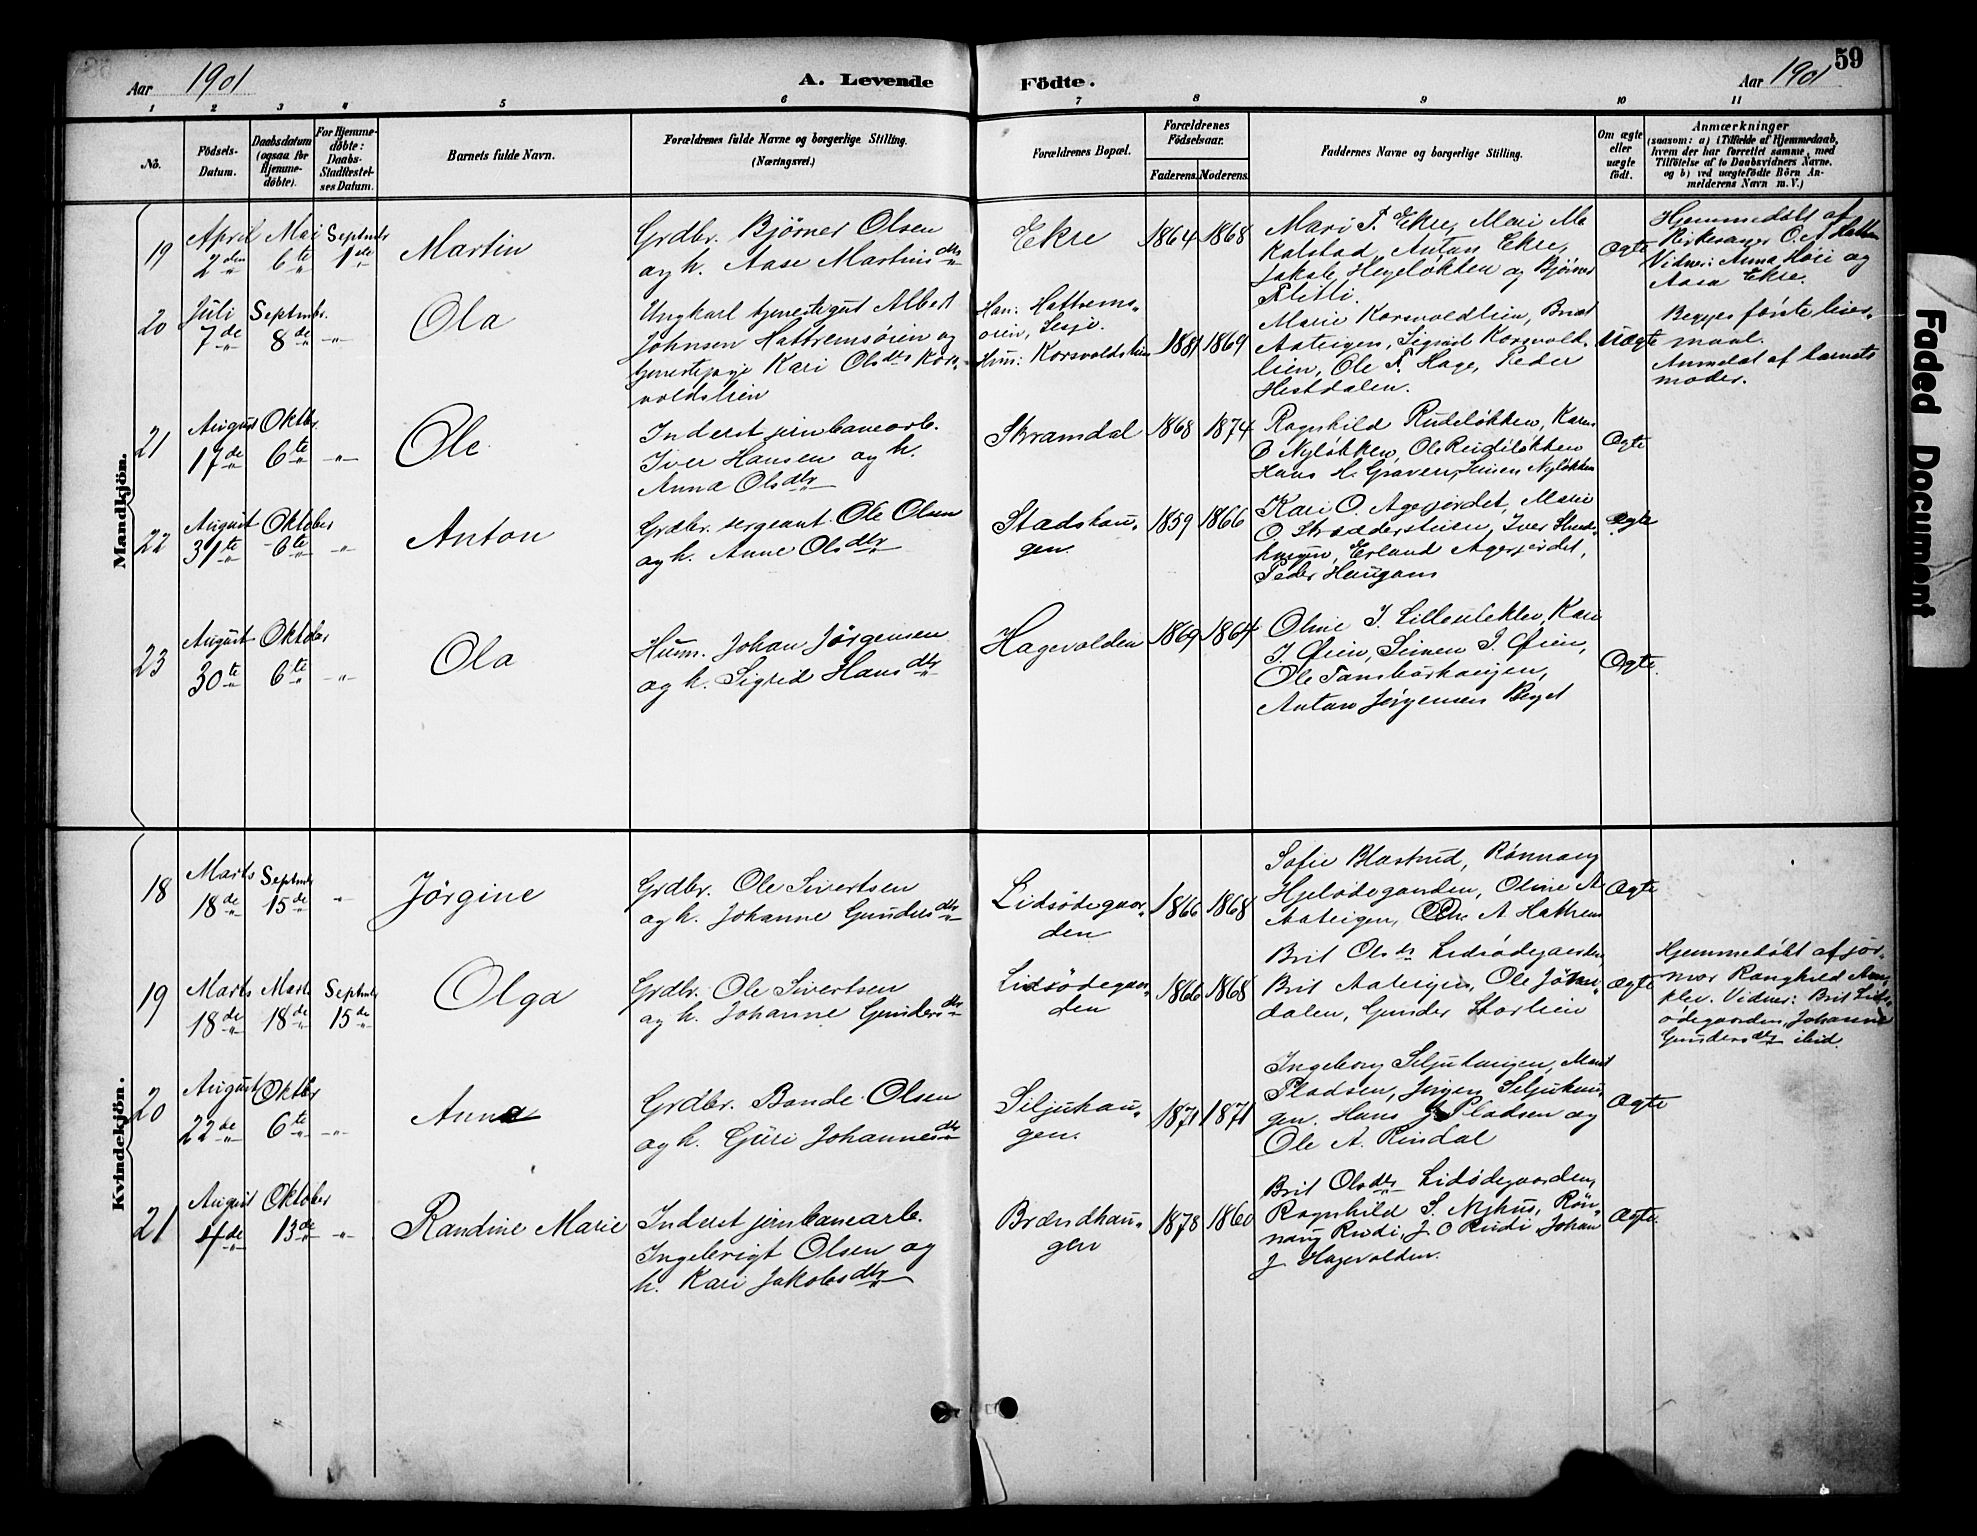 59
Aar 1901
A. Levende
Födte.
Aar 1901
1 2 3 4 5 6 7 8 9 10 11
No.
Födsels-
Datum.
Daabsdatum
(ogsaa for
Hjemme-
döbte).
For Hjemme-
döbte:
Daabs-
Stadfæstel-
ses Datum.
Barnets fulde Navn.
Forældrenes fulde Navne og borgerlige Stilling.
(Næringsvei.)
Forældrenes Bopæl.
Forældrenes
Födselsaar.
Faderens. Moderens.
Faddernes Navne og borgerlige Stilling.
Om ægte
eller
uægte
födt.
Anmærkninger
(saasom: a) i Tilfælde af Hjemmedaab,
hvem der har forrettet samme, med
Tilföielse af to Daabsvidners Navne,
og b) ved uægtefödte Börn An-
melderens Navn m. V.)
Mandkjön.
19
April
2den
Mai
6te
Septmbr
1ste
Martin
Grdbr. Bjørner Olsen
og h. Aase Martinsdtr
Ekre
1864 1868
Mari T. Ekre, Mari
Kalstad, Anton Ekre,
Jakob Hegeløkken og Bjørner
Flitti.
Ægte
Hjemmedøbt af
Kirkesanger O. A.
Vidner: Anna Høie og
Aasa Ekre.
20
Juli
7de
Septmbr.
8de
"
Ola
Ungkarl tjenestegut Albert
Johnsen Hattremsøien og
tjenestepige Kari Olsdtr Kors-
voldslien
Han: Hattrems-
øien, Lesje.
Hun: Korsvoldslien
1881 1869
Marie Korsvoldlien, Brit
Aateigen, Sigrid Korsvold-
lien, Ole T. Hage, Peder
Hestdalen.
Uægte
Begges første leier-
maal.
Anmeldt af barnets
moder.
21
August
17de
Oktbr.
6te
"
Ole
Inderst jernbanearb.
Iver Hansen og h.
Anna Olsdtr
Skramdal
1868 1874
Ragnhild Rudeløkken, Karen
O Nyløkken, Ole Rudiløkken
Hans H. Graven, Simen Nyløkken
Ægte
22
August
31te
Oktober
6te
"
Anton
Grdbr. sergeant Ole Olsen
og h. Anne Olsdtr
Stadshau-
gen.
1859 1866
Kari O. Agerjordet, Marie
O. Skrædderstuen, Iver
haugen, Erland Agerjordet,
Peder Haugans
Ægte
23
August
30te
Oktober
6te
"
Ola
Husm. Johan Jørgensen
og h. Sigrid Hansdtr
Hagevolden
1869 1864
Oline J. Lilleuleklev, Kari
J. Øien, Simen J. Øien,
Ole Tambørhaugen,
Anton Jørgensen Berget
Ægte.
Kvindekjön.
18
Marts
18de
Septmbr
15de
"
Jørgine
Grdbr. Ole Sivertsen
og h. Johanne Gundersdtr
Lidsødegaar-
den
1866 1868
Sofie Blæstrud, Rønnaug
Hjelødegaarden, Oline A.
Aateigen, Ole A. Hattrem
Ægte
19
Marts
18de
Marts
18de
Septmbr
15de
Olga
Grdbr. Ole Sivertsen
og h. Johanne Gundersdtr
Lidsødegaar-
den
1866 1868
Brit Olsdtr Lidsødegaarden,
Brit Aateigen, Ole Johan-
dalen, Gunder Storlien
Ægte
Hjemmedøbt af jor-
mor Ranghild
klev. Vidner: Brit Lids-
ødegaarden, Johanne
Gundersdtr ibid.
20
August
22de
Oktbr
6te
"
Anna
Grdbr. Bonde Olsen
og h. Guri Johannesdtr
Siljuhau-
gen.
1871 1871
Ingeborg Siljuhaugen, Marit
Pladsen, Jørgen Siljuhau-
gen. Hans J Pladsen og
Ole A. Rindal
Ægte
21
August
4de
Oktober
13de
"
Randine Marie
Inderst jernbanearb.
Ingebrigt Olsen og
h. Kari Jakobsdtr
Brændhau-
gen
1878 1860
Brit Olsdtr Lidsødegaarden,
Ragnhild S. Nyhus, Røn-
naug Rudi, J O Rudi, Johan
J Hagevolden.
Ægte.
Faded Document